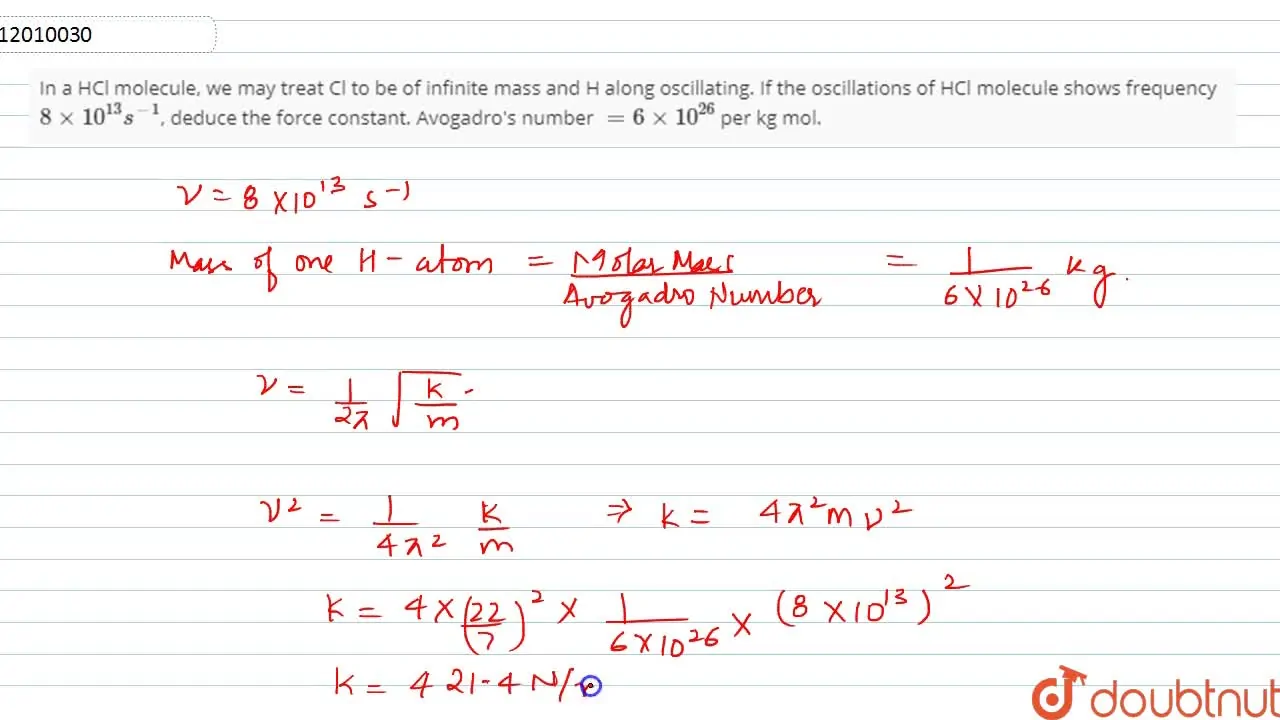 12010030
In a HCl molecule, we may treat Cl to be of infinite mass and H along oscillating. If the oscillations of HCl molecule shows frequency
8 × 10¹³s⁻¹, deduce the force constant. Avogadro's number = 6 × 10²⁶ per kg mol.
ν = 8 × 10¹³ s⁻¹
Mass of one H-atom = Molar Mass / Avogadro Number = 1 / 6 × 10²⁶ kg.
ν = 1/2π √(k/m)
ν² = 1/4π² k/m ⇒ k = 4π²mν²
k = 4 × (22/7)² × 1/6×10²⁶ × (8 × 10¹³)²
k = 421.4 N/
doubtnut